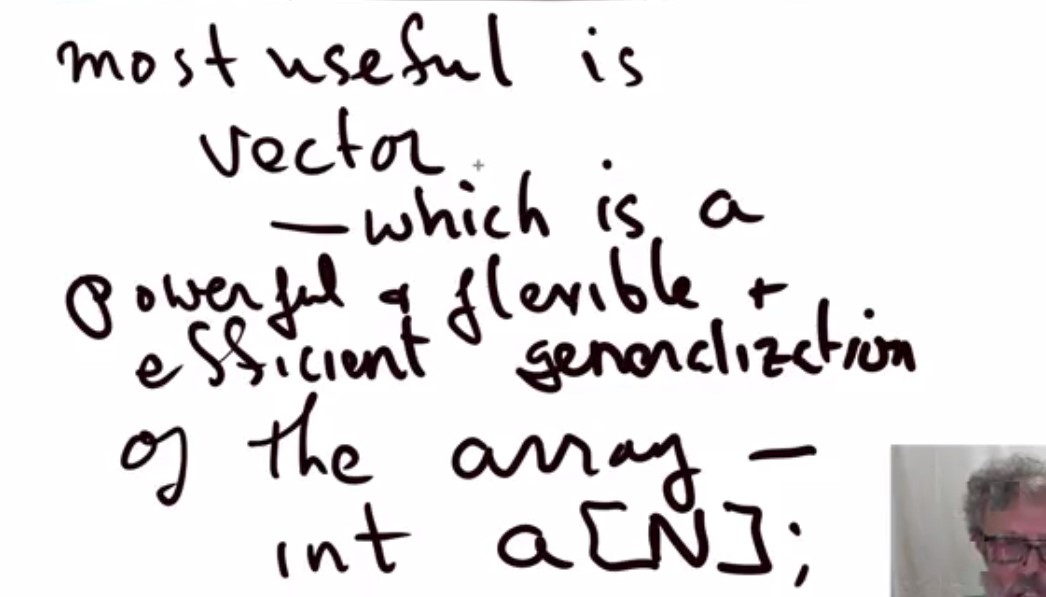 most useful is
vector
— which is a
powerful & flexible +
efficient generalization
of the array —
int a[N];